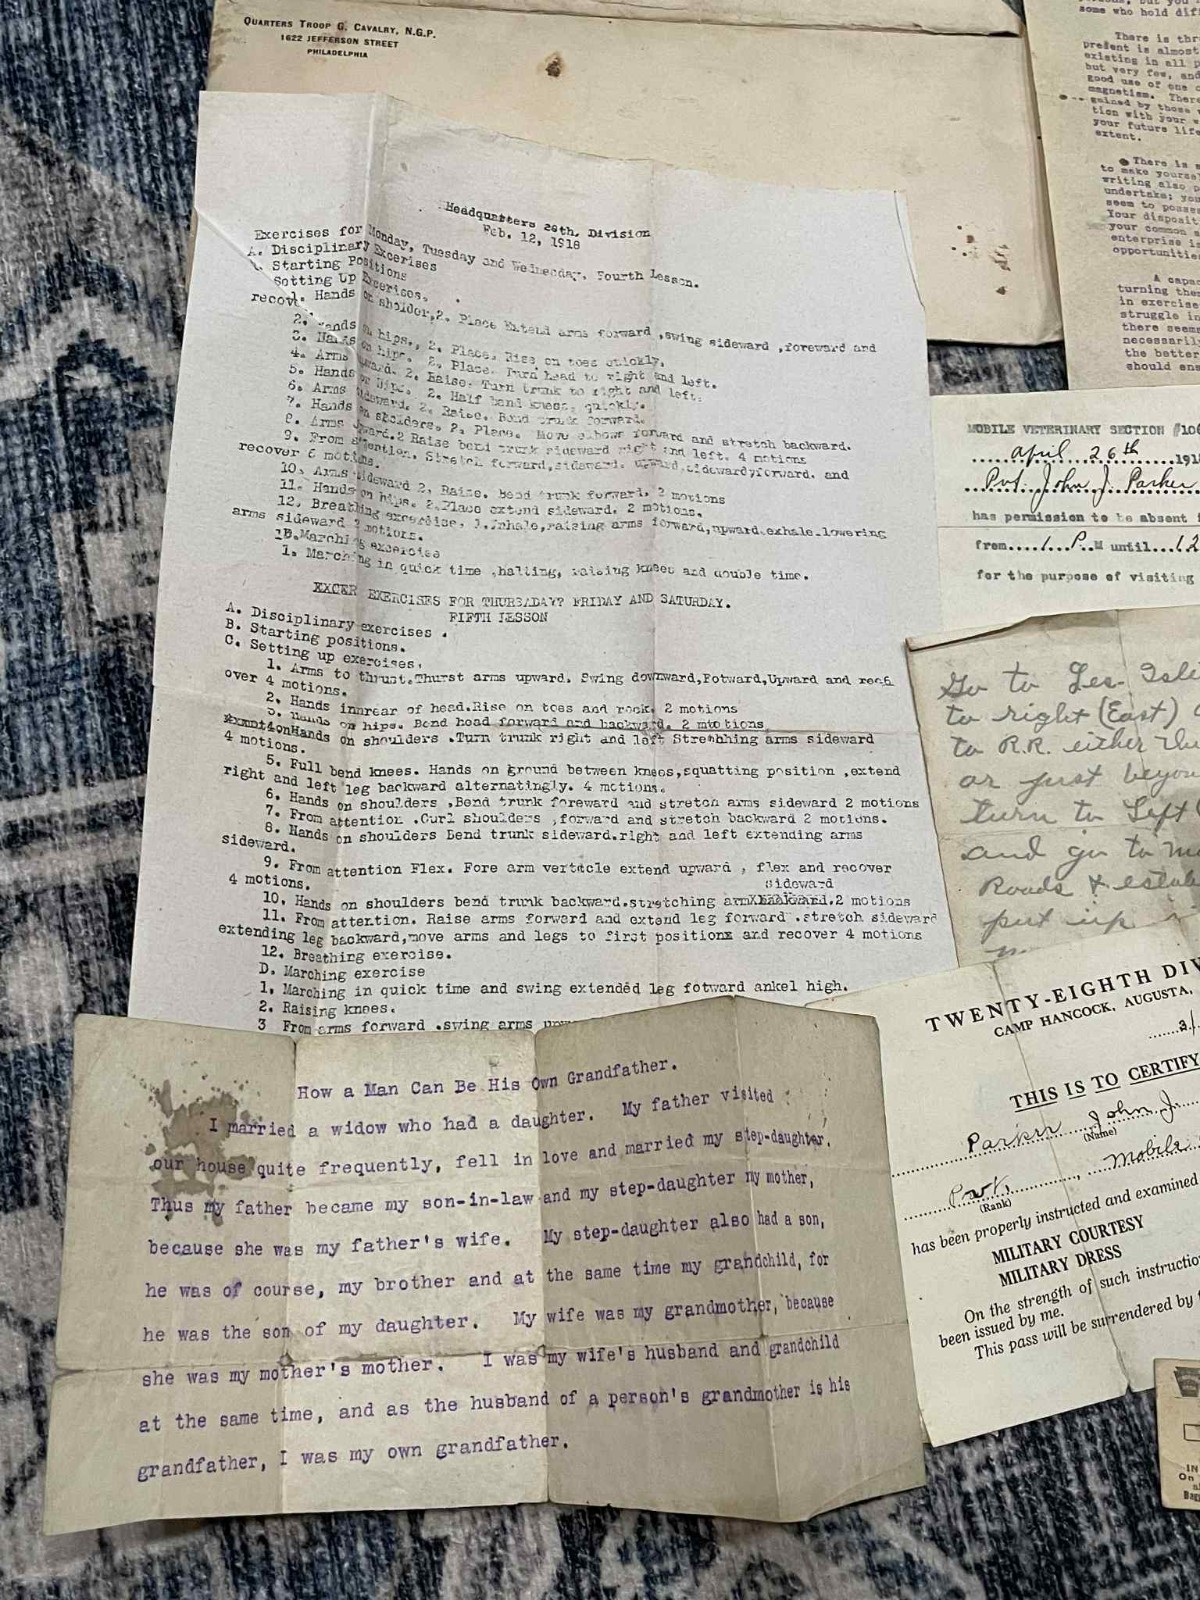 QUARTERS TROOP G. CAVALRY, N.G.P.
1622 JEFFERSON STREET
PHILADELPHIA
some who hold
There is
present is almost
existing in all
but very few, and
good use of one
magnetism. There
gained by those
tion with your
your future life
extent.
There is
to make yourse
writing also
undertake; you
seem to posses
Your disposit
your common
enterprise is
opportunities
A capac
turning the
in exercise
struggle in
there seems
necessarily
the better
should ens
Headquarters 28th. Division
Feb. 12, 1918
Exercises for Monday, Tuesday and Wednesday. Fourth Lesson.
A. Disciplinary Excerises
Starting Positions
Setting Up Excerises.
Hands on sholder,2. Place Extend arms forward ,swing sideward ,foreward and
recov.
2. Hands on hips., 2. Place. Rise on toes quickly.
3. Hands on hips. 2. Place. Turn head to right and left.
4. Arms 2. Raise. Turn trunk to right and left.
5. Hands on hips. 2. Half bend knees, quickly.
6. Arms sideward. 2. Raise. Bend trunk forward.
7. Hands on sholders. 2. Place. Move elbows forward and stretch backward.
8. Arms upward.2 Raise bend trunk sideward right and left. 4 motions
9. From attention. Stretch forward,sideward. upward,sidewardyforward. and
recover 6 motions.
10. Arms sideward 2. Raise. Bend trunk forward. 2 motions
11. Hands on hips. 2.Place extend sideward. 2 motions.
12. Breathing excerdise. 1.Inhale,raising arms forward,upward.exhale.lowering
arms sideward 2 motions.
D.Marching excercise
1. Marching in quick time ,halting, raising knees and double time.
EXCER EXERCISES FOR THURSADAY? FRIDAY AND SATURDAY.
FIFTH LESSON
A. Disciplinary exercises .
B. Starting positions.
C. Setting up exercises.
1. Arms to thrust.Thurst arms upward. Swing downward,Fotward,Upward and
over 4 motions.
2. Hands innrear of head.Rise on toes and rock. 2 motions
3. Hands on hips. Bend head forward and backward. 2 mtotions
Hands on shoulders .Turn trunk right and left Strethhing arms sideward
4 motions.
5. Full bend knees. Hands on ground between knees,squatting position ,extend
right and left leg backward alternatingly. 4 motions.
6. Hands on shoulders .Bend trunk foreward and stretch arms sideward 2 motions
7. From attention .Curl shoulders ,forward and stretch backward 2 motions.
8. Hands on shoulders Bend trunk sideward.right and left extending arms
sideward.
9. From attention Flex. Fore arm vertacle extend upward , flex and recover
4 motions.
sideward
10. Hands on shoulders bend trunk backward.stretching arm 2 motions
11. From attention. Raise arms forward and extend leg forward .stretch sideward
extending leg backward,move arms and legs to first positions and recover 4 motions
12. Breathing exercise.
D. Marching exercise
1, Marching in quick time and swing extended leg fotward ankel high.
2. Raising knees.
3 From arms forward .swing arms
MOBILE VETERINARY SECTION #10
April 26th 191
Pvt. John J. Parker
has permission to be absent
from....1..P.M until...12
for the purpose of visiting
Go to Les
to right (East)
to R.R. either
or just beyon
turn to Left
and go to
Roads &
put up
TWENTY-EIGHTH DIV
CAMP HANCOCK, AUGUSTA,
THIS IS TO CERTIFY
Parker John J.
(Name)
Pvt., Mobile
(Rank)
has been properly instructed and examined
MILITARY COURTESY
MILITARY DRESS
On the strength of such instruction
been issued by me.
This pass will be surrendered by
IN
On
Bagg
How a Man Can Be His Own Grandfather.
I married a widow who had a daughter. My father visited
our house quite frequently, fell in love and married my step-daughter.
Thus my father became my son-in-law and my step-daughter my mother,
because she was my father's wife. My step-daughter also had a son,
he was of course, my brother and at the same time my grandchild, for
he was the son of my daughter. My wife was my grandmother, because
she was my mother's mother. I was my wife's husband and grandchild
at the same time, and as the husband of a person's grandmother is his
grandfather, I was my own grandfather.